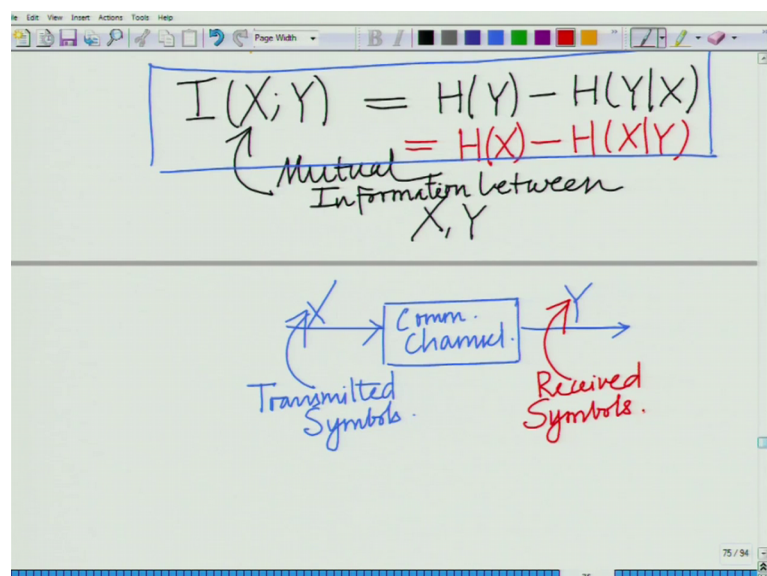 File Edit View Insert Actions Tools Help
Page Width B I
I(X;Y) = H(Y) - H(Y|X)
= H(X) - H(X|Y)
Mutual
Information between
X, Y
X Y
Comm.
Channel.
Transmitted
Symbols.
Received
Symbols.
75 / 94